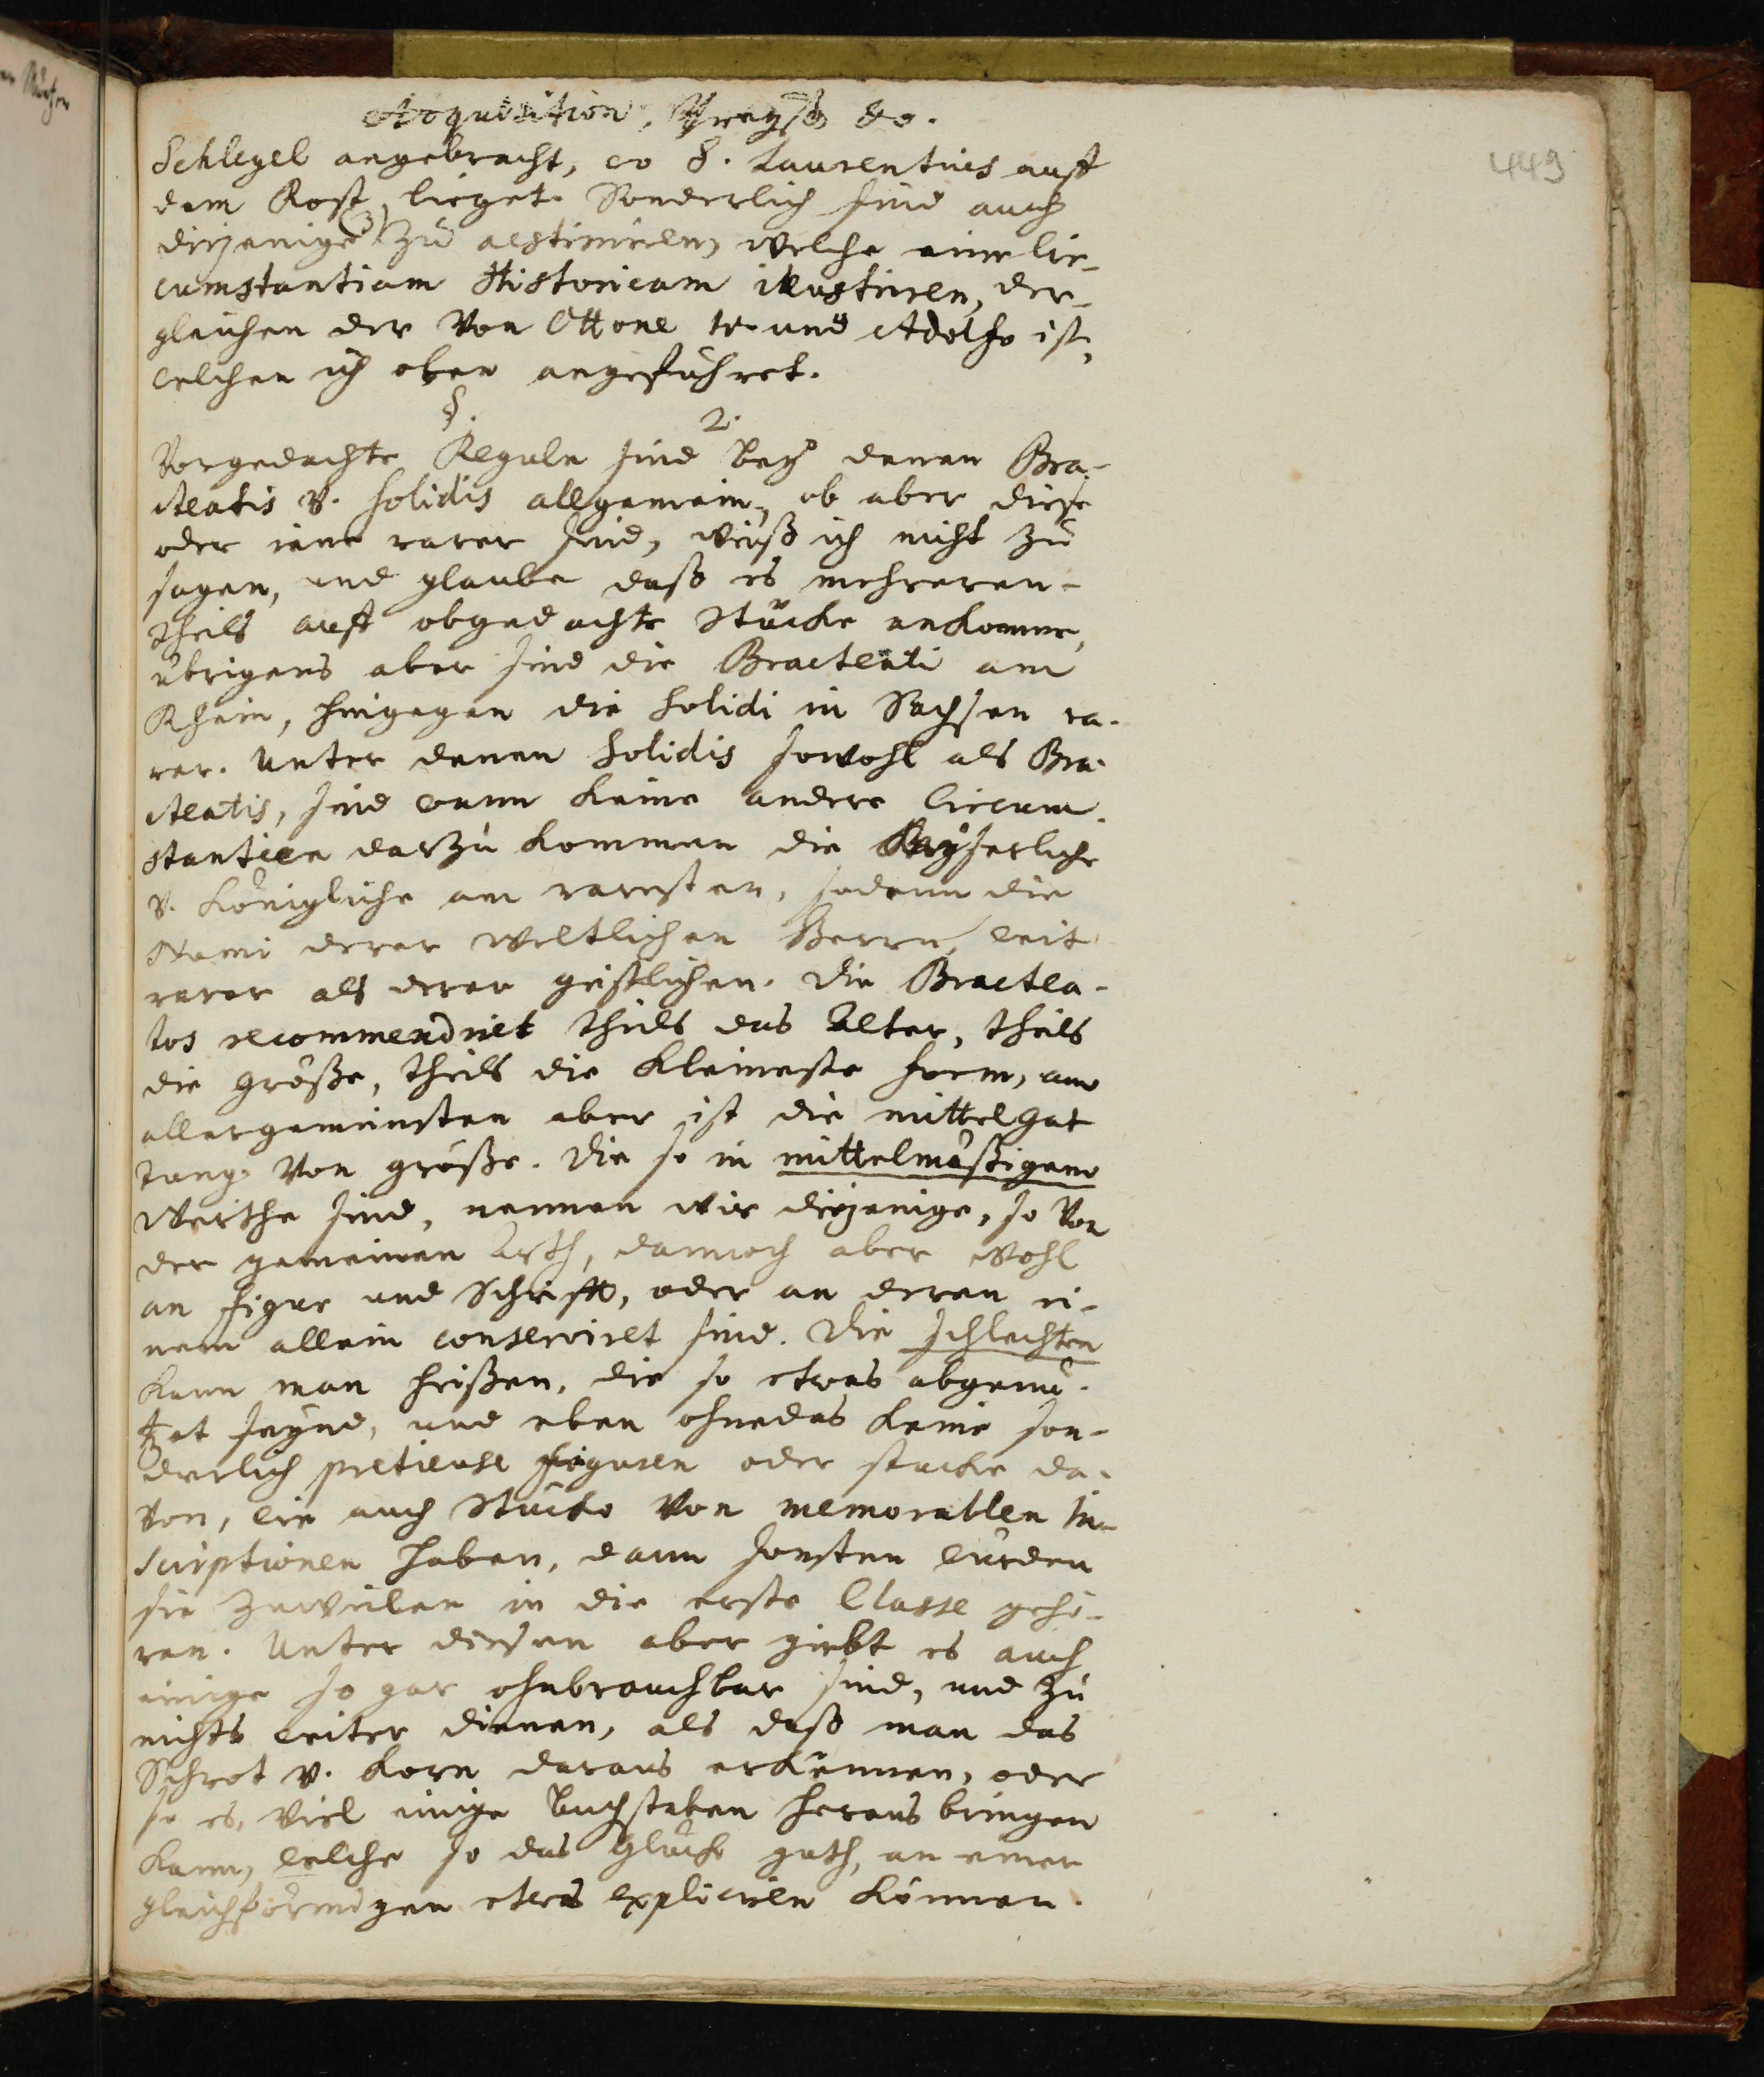 Acquisition, Preyß &c.
449
Schlegel angebracht, wo S. Laurentius auff
dem Rost lieget. Sonderlich sind auch
diejenige zu aestimiren, welche eine Cir-
cumstantiam Historicam illustriren, der-
gleichen der von Ottone IV. und Adolfo ist,
welchen ich oben angeführet.
§. 2.
Vorgedachte Reguln sind bey denen Bra-
cteatis v. solidis allgemein, ob aber diese
oder iene rarer sind, weiß ich nicht zu
sagen, und glaube daß es mehreren-
theils auff obgedachte Stücke ankomme,
übrigens aber sind die Bracteati am
Rhein, hingegen die Solidi in Sachsen ra-
rer. Unter denen Solidis sowohl als Bra-
cteatis, sind wann keine andere Circum-
stantien darzu kommen die Keyserliche
v. Königliche am raresten, sodann die
Numi derer weltlichen Herrn, weit
rarer als derer geistlichen. Die Bractea-
tos recommendiret theils das Alter, theils
die größe, theils die kleineste form, am
allergemeinsten aber ist die mittelgat
tung von größe. Die so in mittelmäßigem
Werthe sind, nennen wir diejenige, so von
der gemeinen Arth, dannoch aber wohl
an figur und Schrifft, oder an deren ei-
nem allein conserviret sind. Die schlechten
kann man heißen, die so etwas abgenu-
tzet seynd, und eben ohnedas keine son-
derlich pretieuse figuren oder stücke da-
von, wie auch Stücke von memorablen In-
scriptionen haben, dann sonsten würden
sie zuweilen in die erste Classe gehö-
ren. Unter diesen aber giebt es auch
einige so gar ohnbrauchbar sind, und zu
nichts weiter dienen, als daß man das
Schrot v. Korn daraus erkennen, oder
so es viel einige Buchstaben heraus bringen
kann, welche so das Glück guth, an einer
gleichförmigen etwas expliciren können.